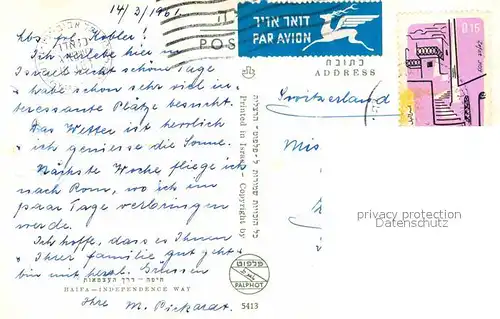 14/3/1961
lbs. frl. Kobler!
Ich verlebe hier in
Israel acht schöne Tage
habe schon sehr viel in-
teressante Plätze besucht.
Das Wetter ist herrlich
ich geniesse die Sonne.
Nächste Woche fliege ich
nach Rom, wo ich ein
paar Tage verbringen
werde.
Ich hoffe, dass es Ihnen
Ihrer Familie gut geht
bin mit herzl. Grüssen
Ihre M. Pickardt.
חיפה - דרך העצמאות
HAIFA—INDEPENDENCE WAY
5413
פלפוט
PALPHOT
Printed in Israel - Copyright by
כל הזכויות שמורות ל-פלפוט- הרצליה
POS
דואר אויר
PAR AVION
0.15
כתובת
ADDRESS
Switzerland
Mis
privacy protection
watermark